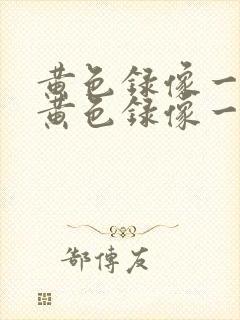 黄色録像一
黄色録像一
郜傳友